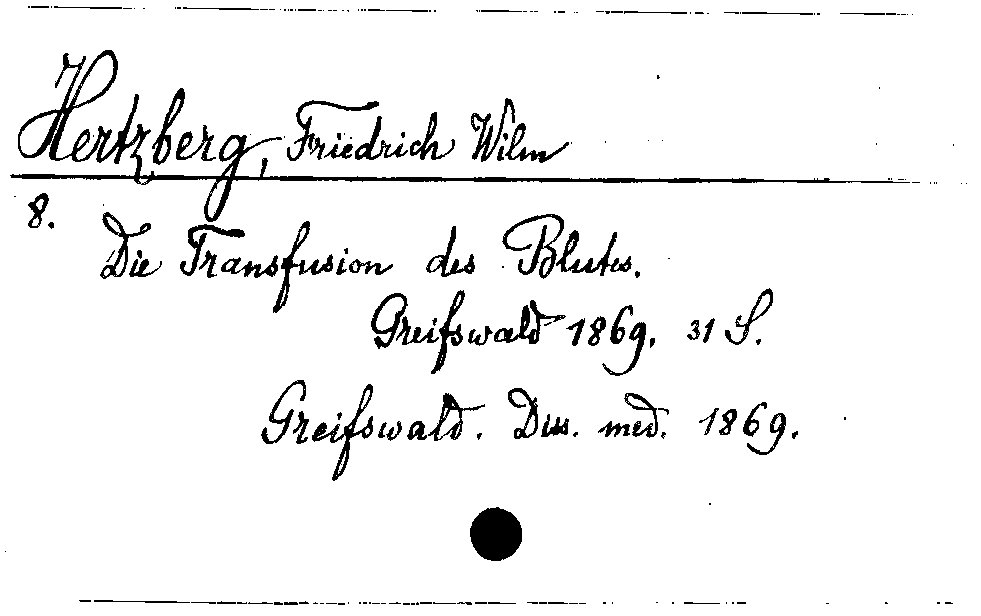 Hertzberg, Friedrich Wilm
8.
Die Transfusion des Blutes.
Greifswald 1869. 31 S.
Greifswald. Diss. med. 1869.